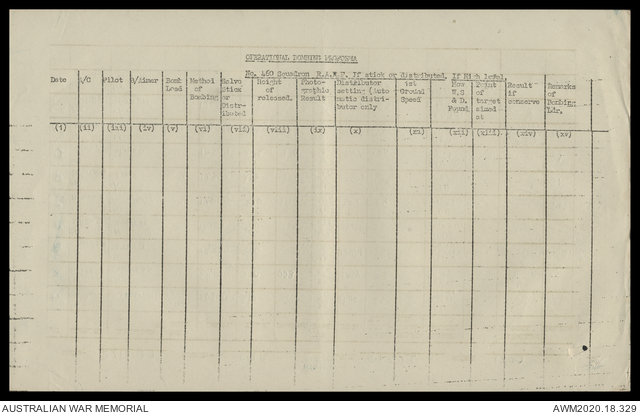 OPERATIONAL BOMBING PROFORMA
No. 460 Squadron R.A.A.F. If stick or distributed. If High level.
Date A/C Pilot B/Aimer Bomb Load Method of Bombing Salvo Stick or Distr- ibuted Height of released. Photo- graphic Result Distributor setting (auto matic distri- butor only 1st Ground Speed How W.S & D. Found Point of target aimed at Result if conserve Remarks of Bombing Ldr.
(i) (ii) (iii) (iv) (v) (vi) (vii) (viii) (ix) (x) (xi) (xii) (xiii) (xiv) (xv)
AUSTRALIAN WAR MEMORIAL AWM2020.18.329